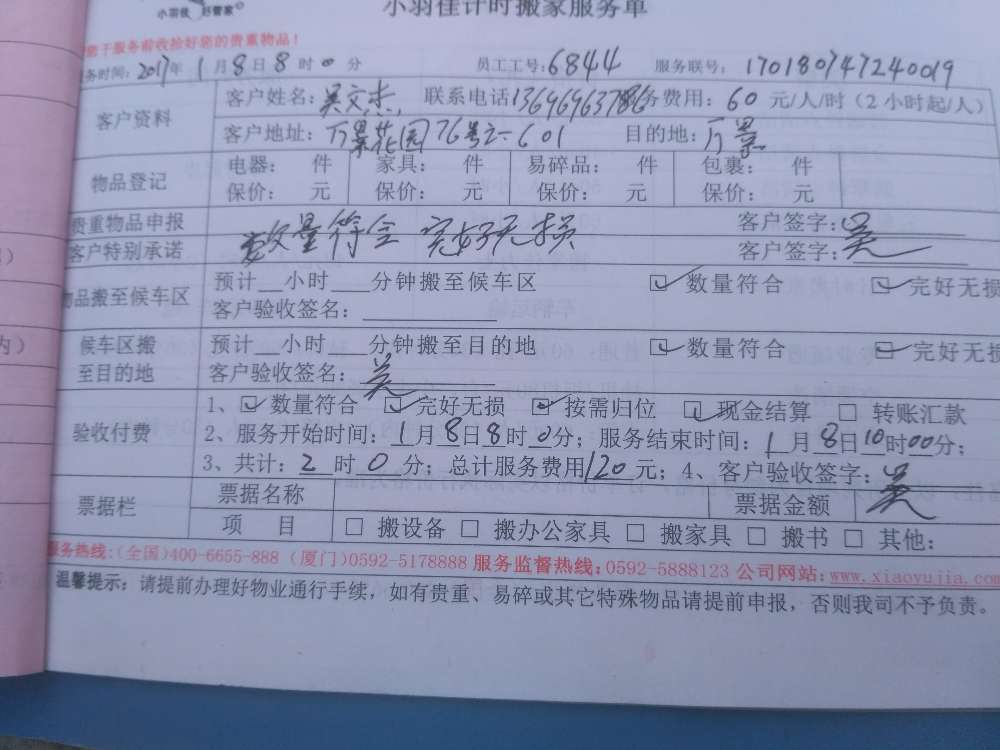 小羽佳计时搬家服务单
小羽佳 好管家
于服务前收捡好您的贵重物品!
务时间: 2017年 1月8日8时00分 员工工号:6844 服务联号: 170180747240019
客户资料 客户姓名: 联系电话 13696963786 务费用: 60 元/人/时(2小时起/人)
客户地址: 万景花园76号之一601 目的地: 万景
物品登记 电器: 件 家具: 件 易碎品: 件 包裹: 件
保价: 元 保价: 元 保价: 元 保价: 元
贵重物品申报 客户签字: 吴
客户特别承诺 数量符合 完好无损 客户签字: 吴
物品搬至候车区 预计__小时___分钟搬至候车区 ☑ 数量符合 ☑ 完好无损
客户验收签名:
候车区搬至目的地 预计__小时___分钟搬至目的地 ☑ 数量符合 ☑ 完好无损
客户验收签名: 吴
验收付费 1、☑ 数量符合 ☑ 完好无损 ☑ 按需归位 ☑ 现金结算 □ 转账汇款
2、服务开始时间: 1月8日8时0分; 服务结束时间: 1月8日10时00分;
3、共计: 2时0分; 总计服务费用120元; 4、客户验收签字: 吴
票据栏 票据名称 票据金额
项 目 □ 搬设备 □ 搬办公家具 □ 搬家具 □ 搬书 □ 其他:
服务热线:(全国)400-6655-888 (厦门)0592-5178888 服务监督热线:0592-5888123 公司网站:www.xiaoyujia.com
温馨提示: 请提前办理好物业通行手续, 如有贵重、易碎或其它特殊物品请提前申报, 否则我司不予负责。